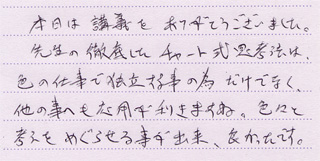 本日は講義をありがとうございました。
先生の徹底したチャート式思考法は、
色の仕事で独立する事の為だけでなく、
他の事へも応用が利きますね。色々と
考えをめぐらせる事が出来、良かったです。